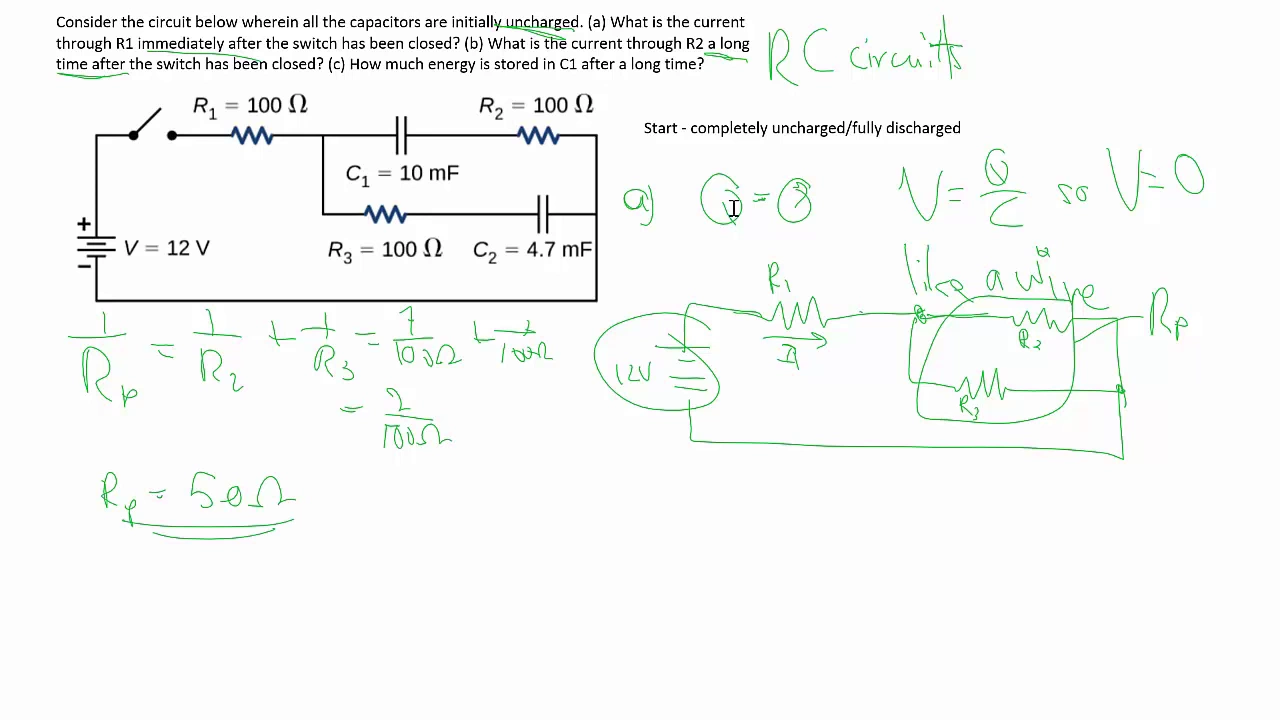 Consider the circuit below wherein all the capacitors are initially uncharged. (a) What is the current
through R1 immediately after the switch has been closed? (b) What is the current through R2 a long
time after the switch has been closed? (c) How much energy is stored in C1 after a long time?
RC circuits
R1 = 100 Ω
R2 = 100 Ω
Start - completely uncharged/fully discharged
C1 = 10 mF
a) Q = 0
V = Q/C so V = 0
+
V = 12 V
-
R3 = 100 Ω
C2 = 4.7 mF
like a wire
R1
I
12V
R2
R3
Rp
1/Rp = 1/R2 + 1/R3 = 1/100Ω + 1/100Ω
= 2/100Ω
Rp = 50Ω